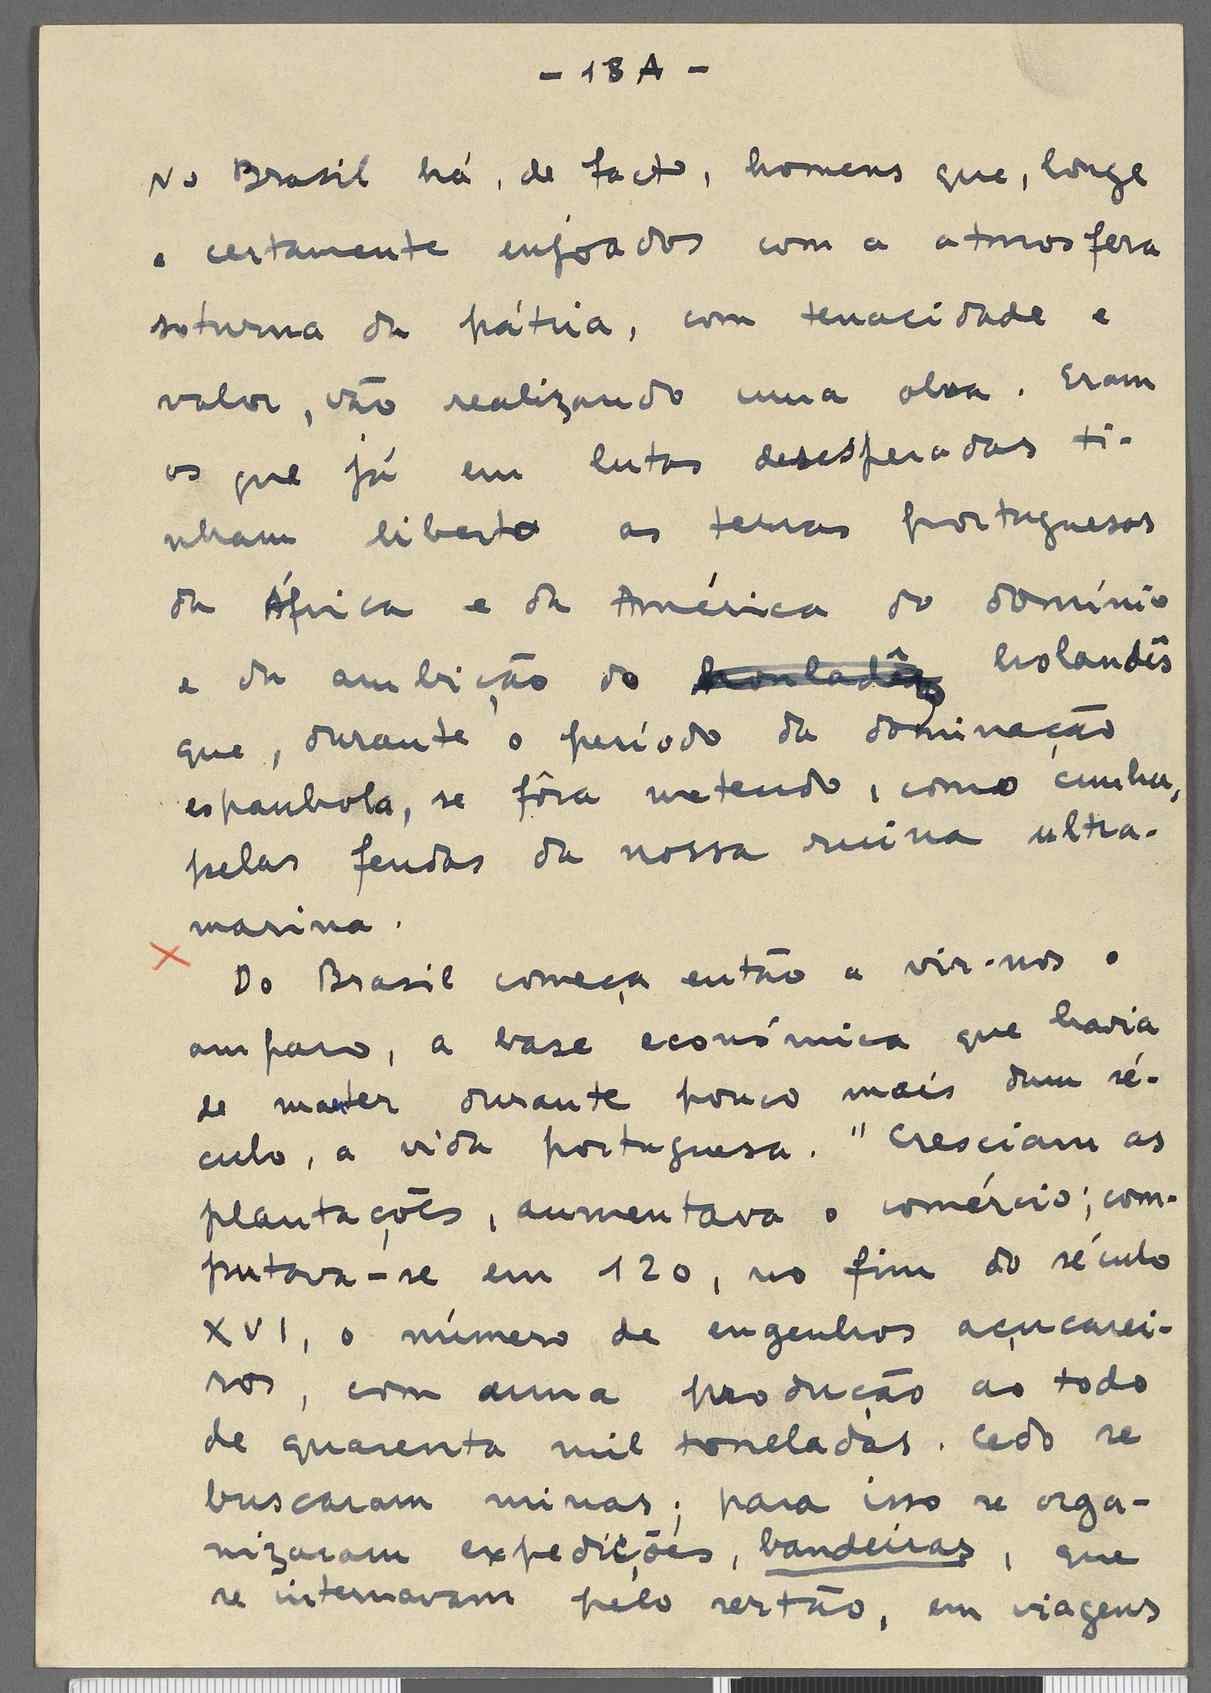 - 13 A -
No Brasil há, de facto, homens que, longe
e certamente enjoados com a atmosfera
soturna da pátria, com tenacidade e
valor, vão realizando uma obra. Eram
os que já em lutas desesperadas ti-
nham liberto as terras portuguesas
da África e da América do domínio
e da ambição do holandês
que, durante o período da dominação
espanhola, se fôra metendo, como cunha,
pelas fendas da nossa ruina ultra-
marina.
Do Brasil começa então a vir-nos o
amparo, a base económica que havia
de manter durante pouco mais dum sé-
culo, a vida portuguesa. "Cresciam as
plantações, aumentava o comércio; com-
putava-se em 120, no fim do século
XVI, o número de engenhos açucarei-
ros, com uma produção ao todo
de quarenta mil toneladas. Cedo se
buscaram minas; para isso se orga-
nizaram expedições, bandeiras, que
se internavam pelo sertão, em viagens